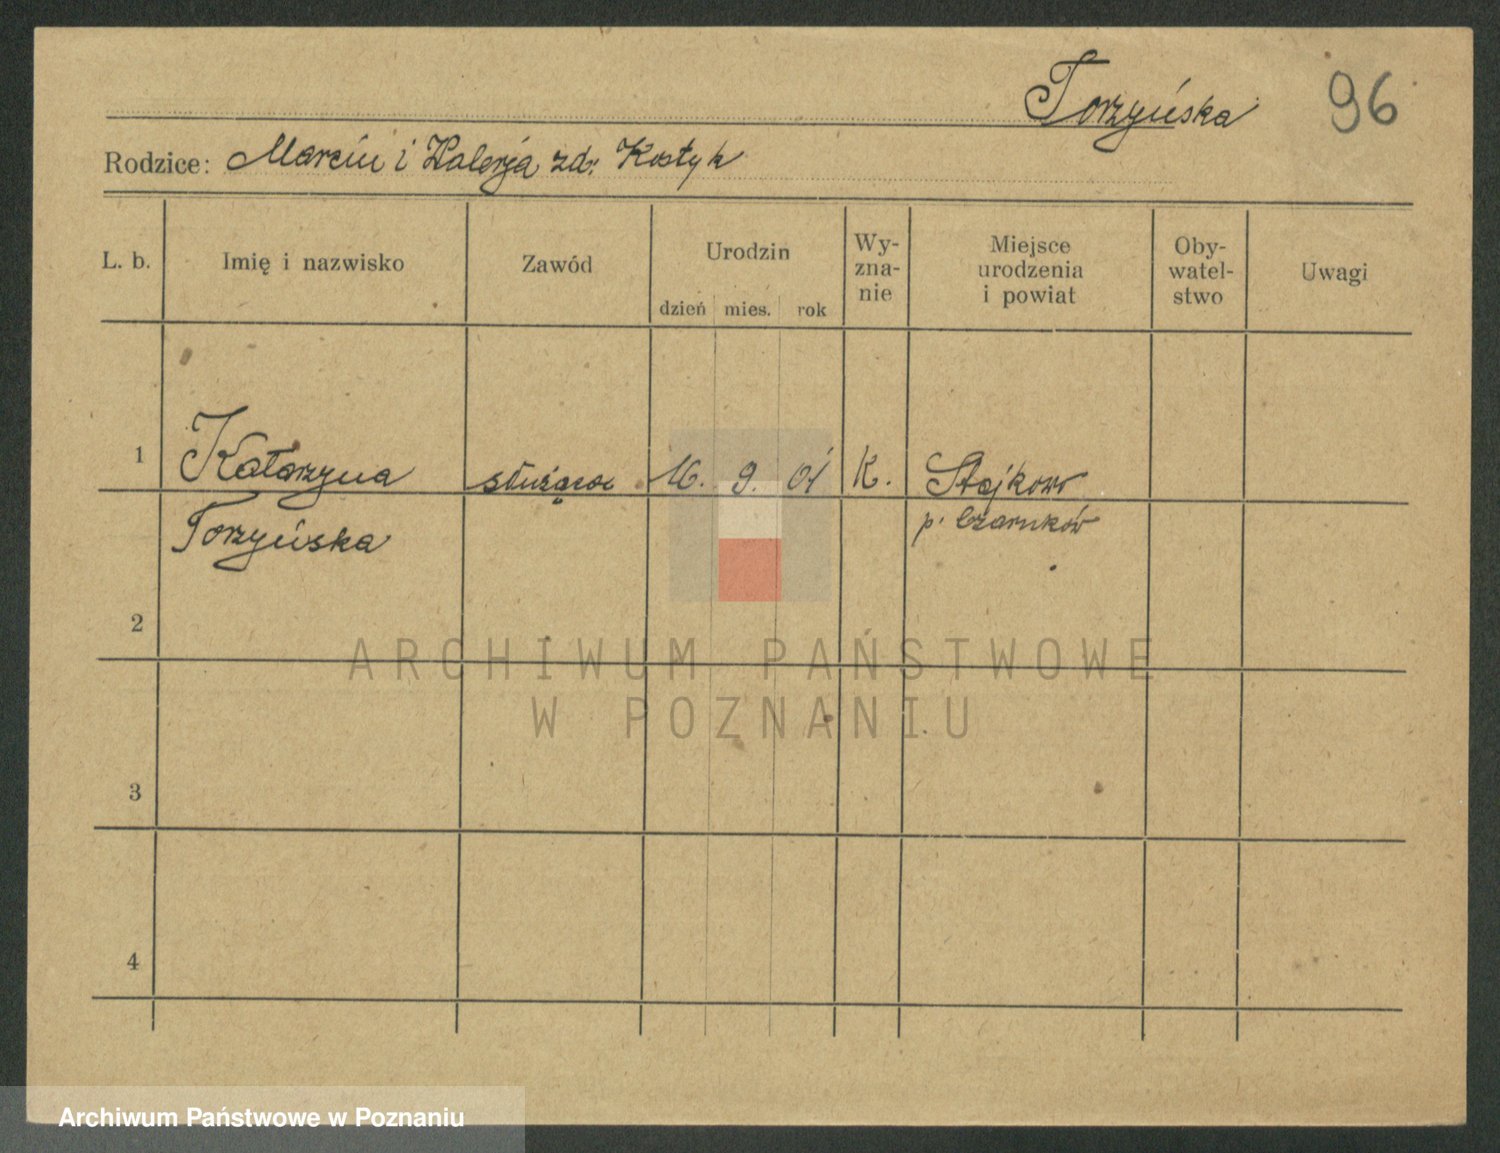 Torzyńska 96
Rodzice: Marcin i Walerja zd. Kostyk
L. b. Imię i nazwisko Zawód Urodzin Wy-zna-nie Miejsce urodzenia i powiat Oby-watel-stwo Uwagi
dzień mies. rok
1 Katarzyna służąca 16. 9. 01 K. Stajkowo
Torzyńska p. Czarnków
2
ARCHIWUM PAŃSTWOWE
W POZNANIU
3
4
Archiwum Państwowe w Poznaniu